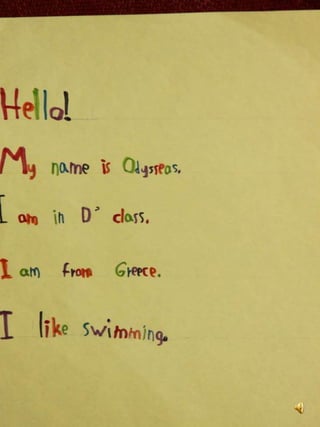 Hello!
My name is Odysseas.
I am in D' class.
I am from Greece.
I like swimming.